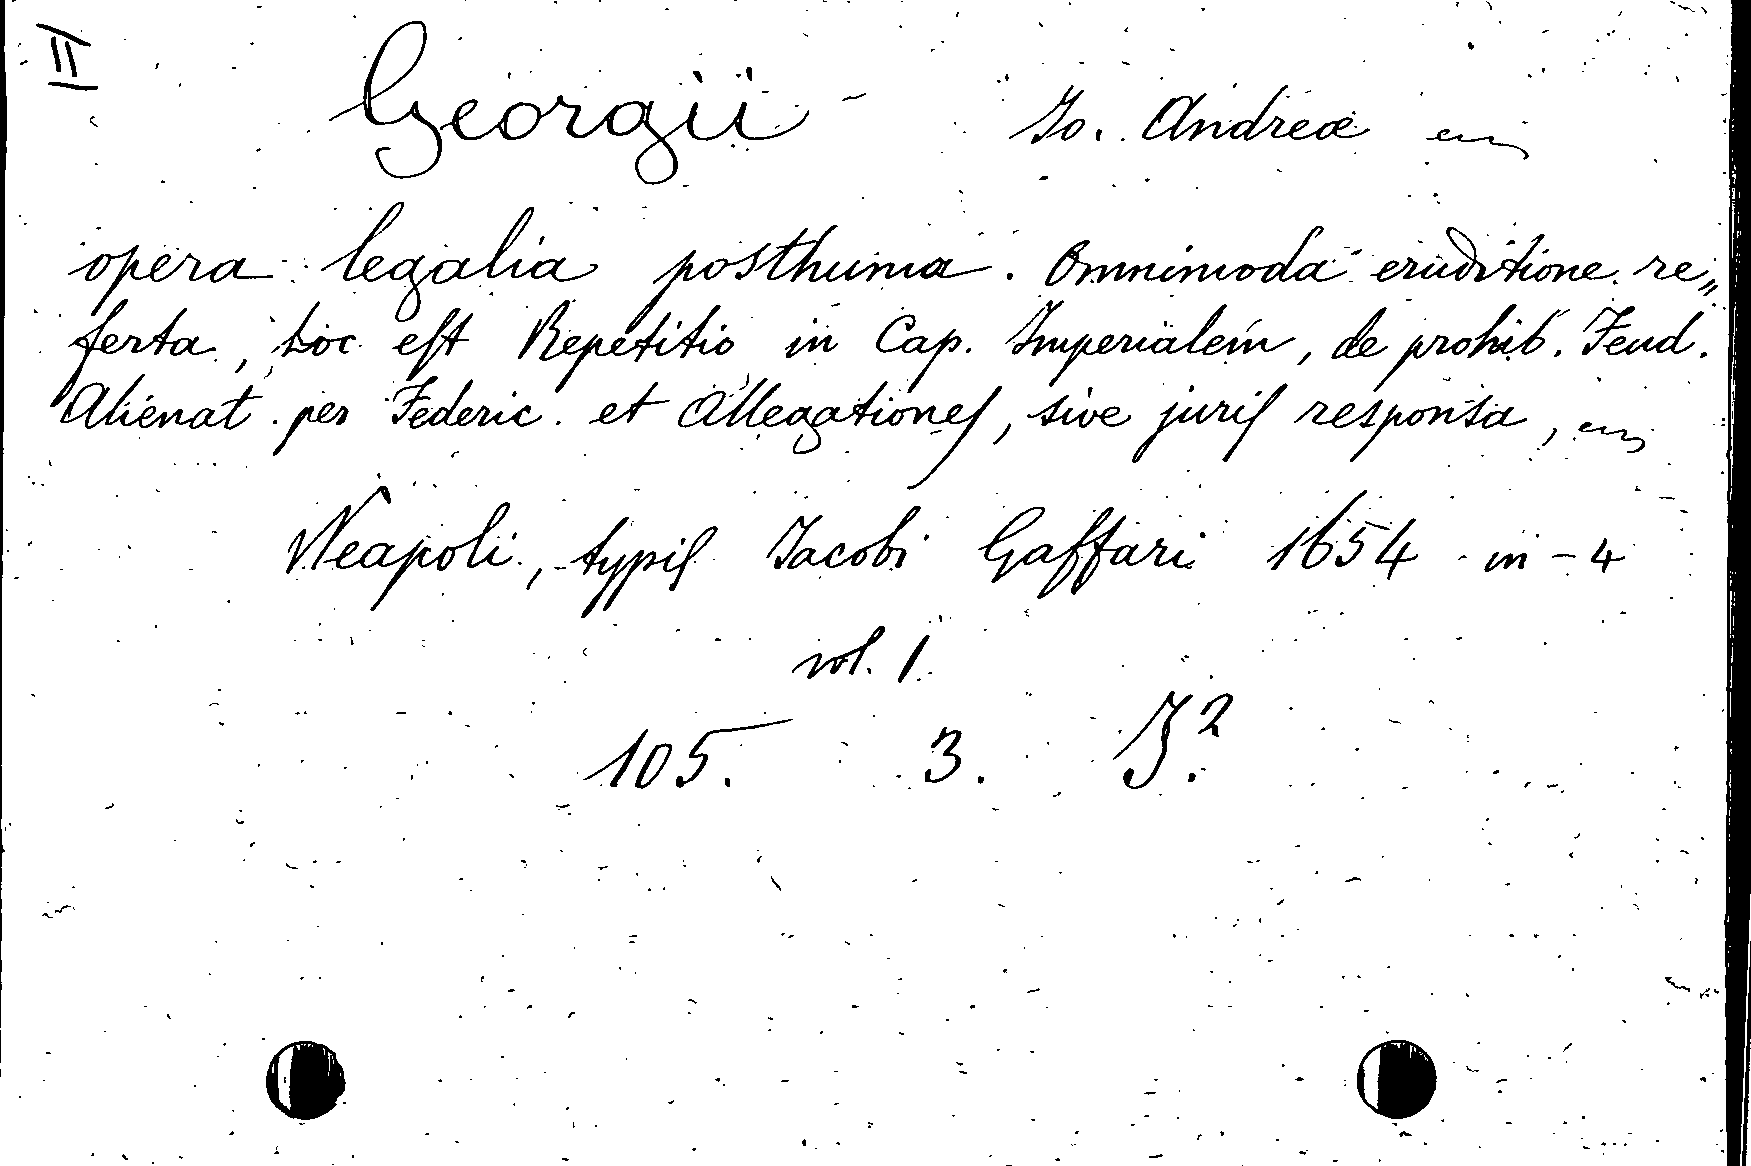 II
Georgii - Jo. Andreæ
opera legalia posthuma. Omnimoda eruditione re„
ferta, hoc eſt Repetitio in Cap. Imperialem, de prohib. Feud.
Alienat. per Federic. et Allegationeſ, sive juriſ responsa,
Neapoli, typiſ Jacobi Gaffari 1654 in-4
vol. 1.
105. 3. J².